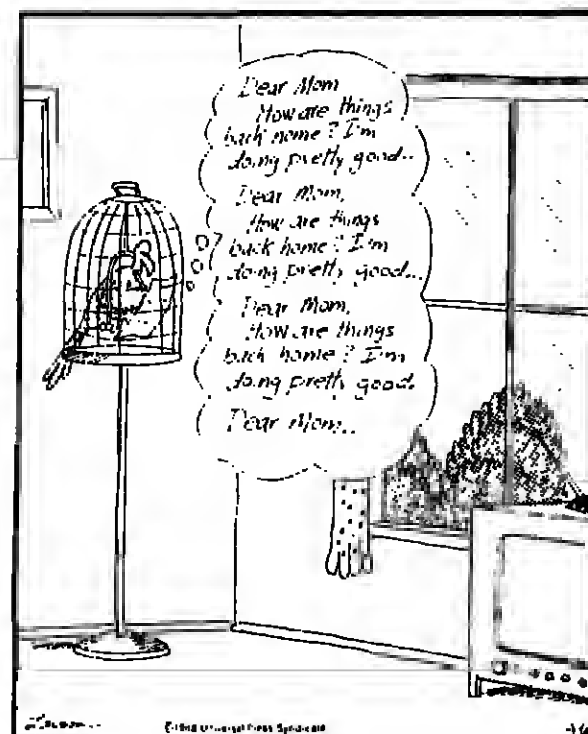 Dear Mom
How are things
back home? I'm
doing pretty good...
Dear Mom,
How are things
back home? I'm
doing pretty good...
Dear Mom,
How are things
back home? I'm
doing pretty good.
Dear Mom...
Universal Press Syndicate